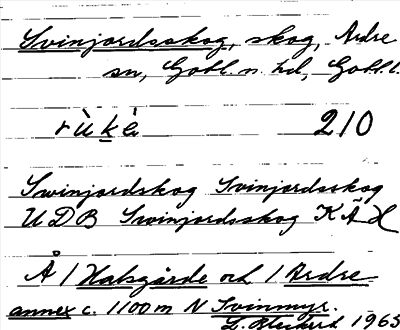 Svinjordsskog, skog, Ardre
sn, Gotl. n. hd, Gotl. l.
rùkà 210
Swinjordskog Svinjordsskog
UDB Swinjordsskog KÄH
Å / Halsgårde och / Ardre
annex c. 1100 m N Svinmyr.
1963